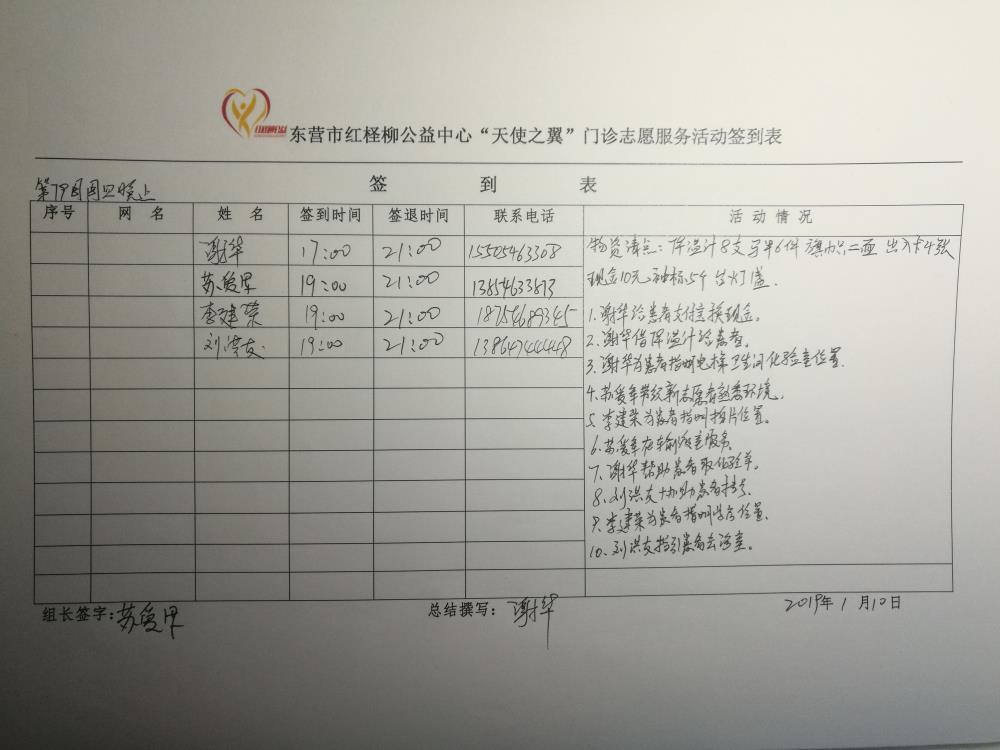 东营市红柽柳公益中心“天使之翼”门诊志愿服务活动签到表
第79周周四晚上
签 到 表
序号 网 名 姓 名 签到时间 签退时间 联系电话 活 动 情 况
谢华 17:00 21:00 15505463308
苏爱军 19:00 21:00
李建荣 19:00 21:00 18754689345
刘洪友 19:00 21:00
物资清点:体温计8支 马甲6件 旗帜 二面 出入卡4张
现金10元 袖标5个 台灯1盏.
1.谢华给患者支付宝换现金。
2.谢华借体温计给患者。
3.谢华为患者指明电梯卫生间化验室位置.
4.苏爱军带领新志愿者熟悉环境.
5.李建荣为患者指明拍片位置。
6.苏爱军在输液室服务.
7.谢华帮助患者取化验单.
8.刘洪友协助患者挂号.
9.李建荣为患者指明 位置.
10.刘洪友指引患者去诊室。
组长签字:苏爱军 总结撰写:谢华 2019年 1 月10日